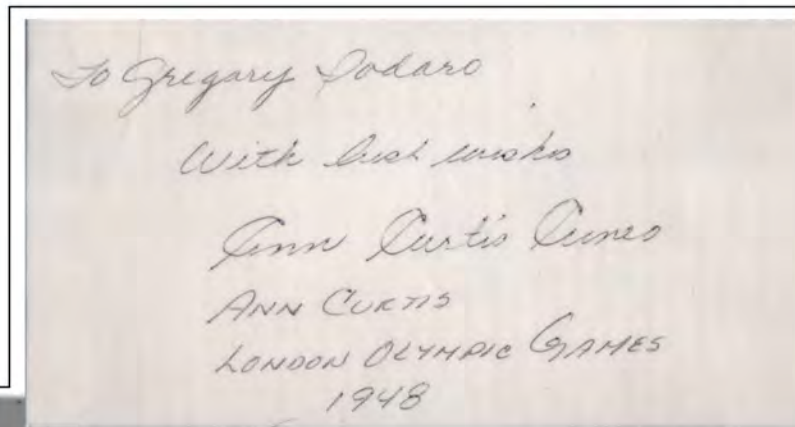 To Gregary Dodaro
With best wishes
Ann Curtis Cuneo
ANN CURTIS
LONDON OLYMPIC GAMES
1948